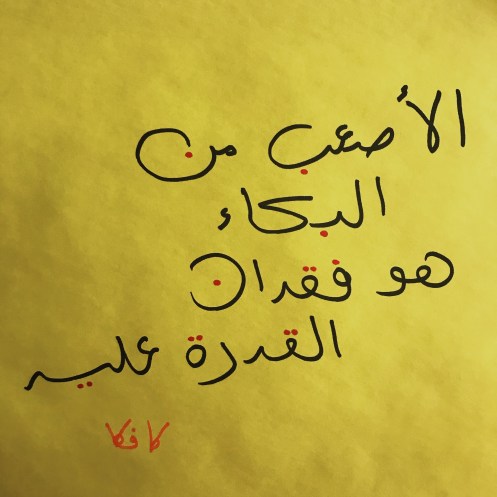 الأصعب من
البكاء
هو فقدان
القدرة عليه
كافكا